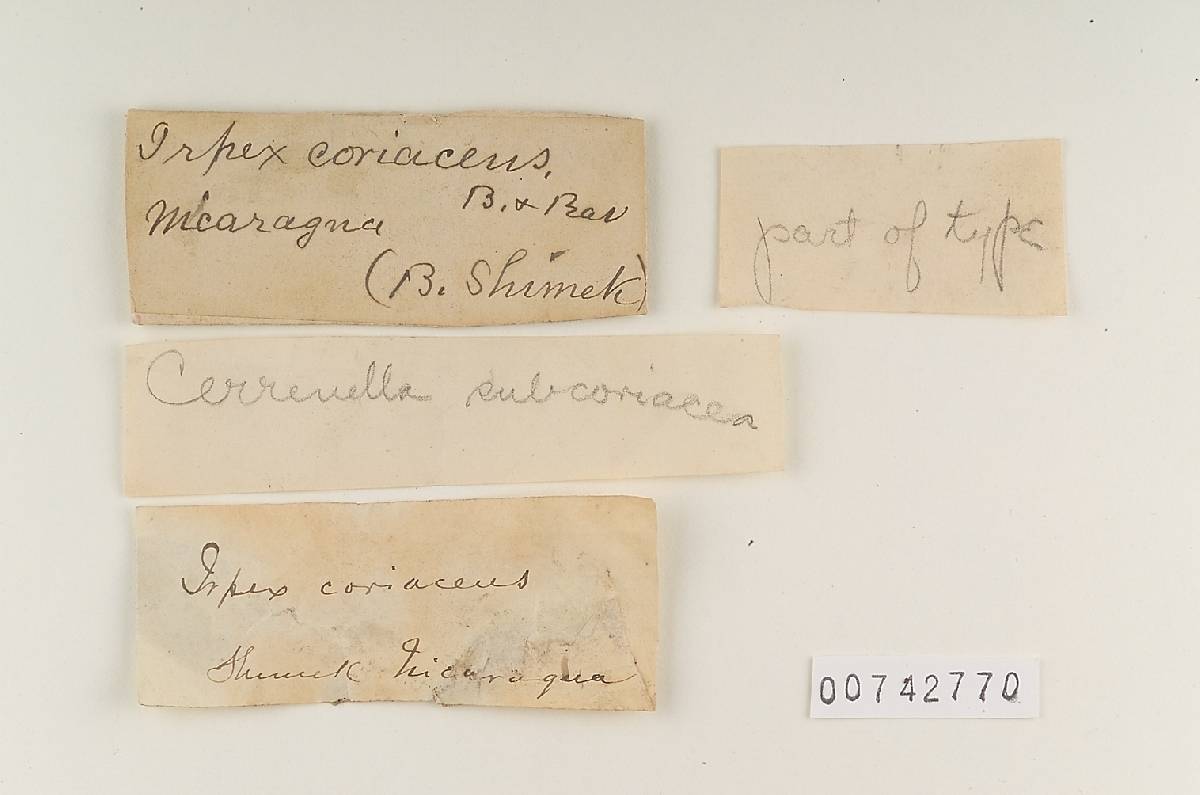 Irpex coriaceus,
B. & Rav
Nicaragua
(B. Shimek)
part of type
Cerrenella subcoriacea
Irpex coriaceus
Shimek Nicaragua
00742770